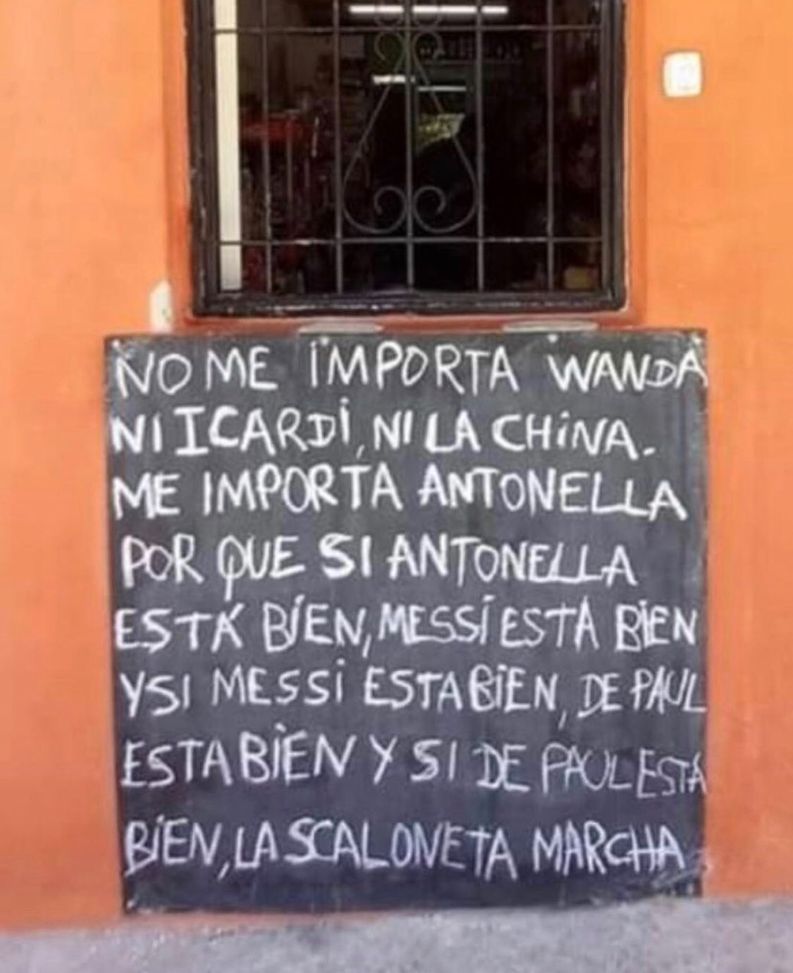 NO ME IMPORTA WANDA
NI ICARDI, NI LA CHINA.
ME IMPORTA ANTONELLA
POR QUE SI ANTONELLA
ESTÁ BIEN, MESSI ESTÁ BIEN
Y SI MESSI ESTA BIEN, DE PAUL
ESTA BIEN Y SI DE PAUL ESTÁ
BIEN, LA SCALONETA MARCHA